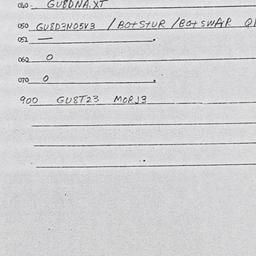 040 GU8DNA.XT
050 GU8D3N05V3 / BOTSTUR / BOTSWAR
051 —
062 0
070 0 .
900 GU8T23 MORJ3